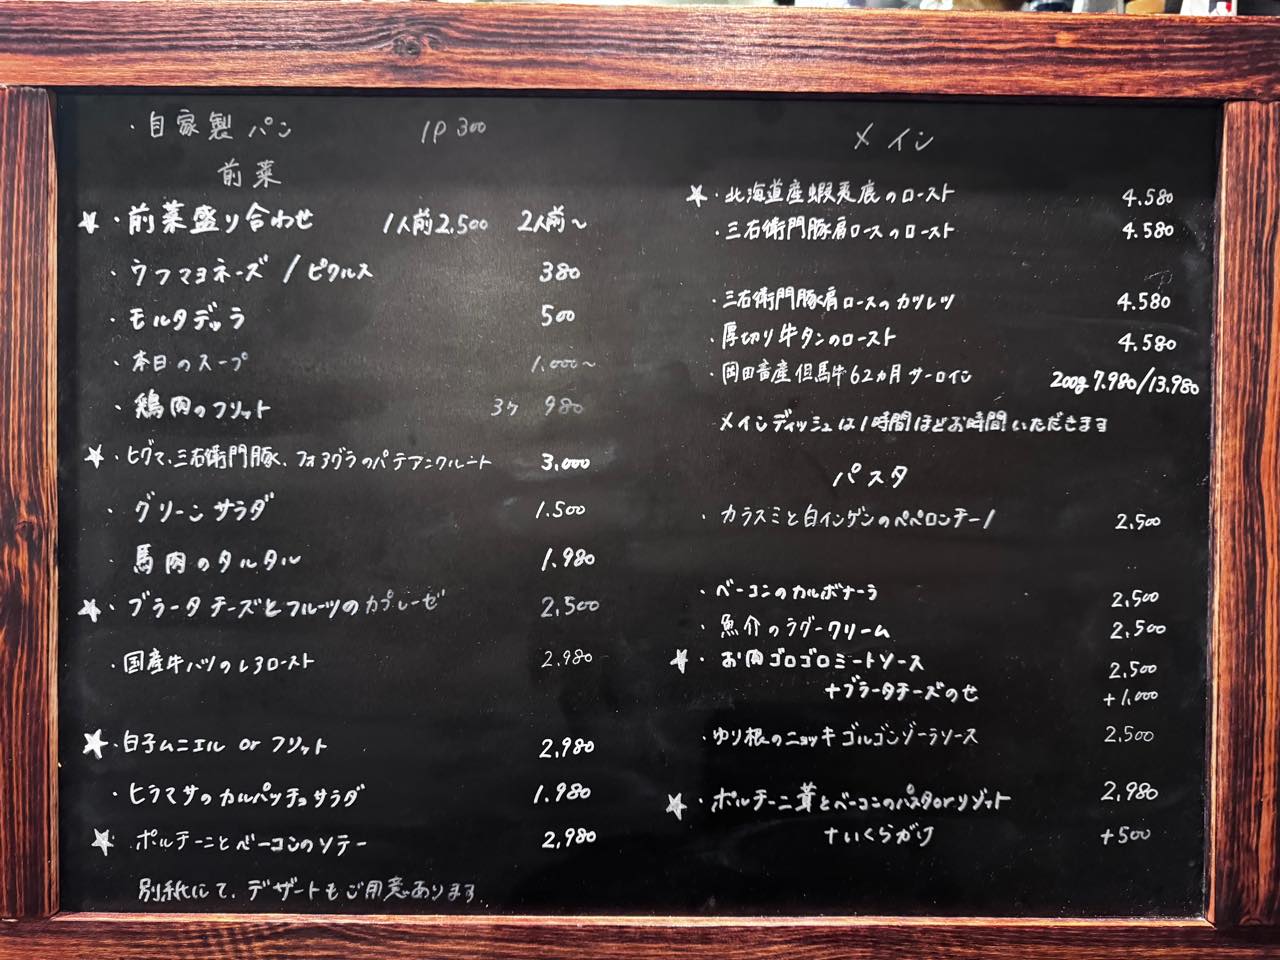 ・自家製パン 1P 300
前菜
★・前菜盛り合わせ 1人前2,500 2人前～
・ウフマヨネーズ / ピクルス 380
・モルタデッラ 500
・本日のスープ 1,000～
・鶏肉のフリット 3ケ 980
★・ヒグマ、三右衛門豚、フォアグラのパテアンクルート 3,000
・グリーンサラダ 1.500
・馬肉のタルタル 1.980
★・ブラータチーズとフルーツのカプレーゼ 2,500
・国産牛ハツのレアロースト 2.980
★・白子ムニエル or フリット 2,980
・ヒラマサのカルパッチョサラダ 1.980
★・ポルチーニとベーコンのソテー 2,980
別紙にて、デザートもご用意あります
メイン
★・北海道産蝦夷鹿のロースト 4.580
・三右衛門豚肩ロースのロースト 4.580
・三右衛門豚肩ロースのカツレツ 4.580
・厚切り牛タンのロースト 4.580
・岡田畜産但馬牛62カ月サーロイン 200g 7.980/13.980
メインディッシュは1時間ほどお時間いただきます
パスタ
・カラスミと白インゲンのペペロンチーノ 2,500
・ベーコンのカルボナーラ 2,500
・魚介のラグークリーム 2,500
★・お肉ゴロゴロミートソース 2,500
+ブラータチーズのせ +1,000
・ゆり根のニョッキゴルゴンゾーラソース 2,500
★・ポルチーニ茸とベーコンのパスタorリゾット 2,980
+いくらがけ +500